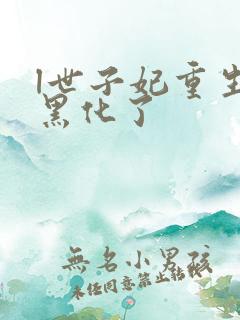 1世子妃重生
黑化了
無名小男孩
未经同意禁止转载